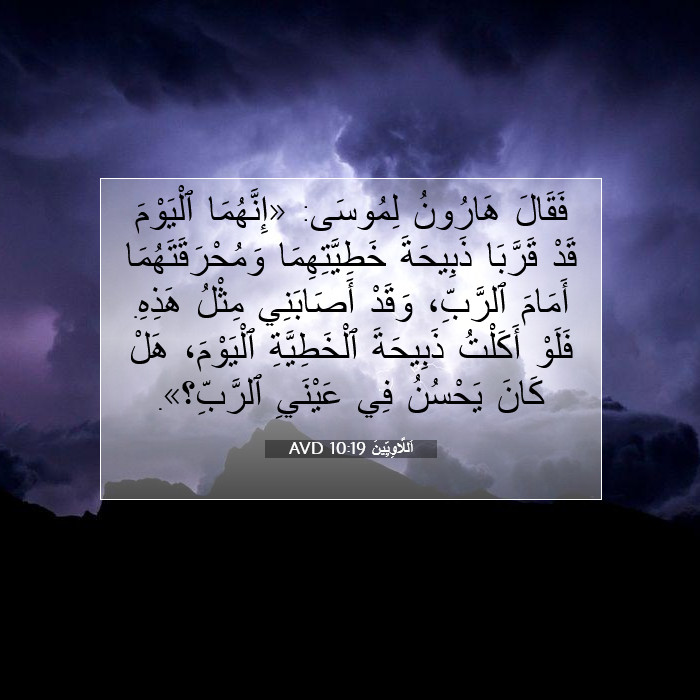 فَقَالَ هَارُونُ لِمُوسَى: «إِنَّهُمَا ٱلْيَوْمَ
قَدْ قَرَّبَا ذَبِيحَةَ خَطِيَّتِهِمَا وَمُحْرَقَتَهُمَا
أَمَامَ ٱلرَّبِّ، وَقَدْ أَصَابَنِي مِثْلُ هَذِهِ.
فَلَوْ أَكَلْتُ ذَبِيحَةَ ٱلْخَطِيَّةِ ٱلْيَوْمَ، هَلْ
كَانَ يَحْسُنُ فِي عَيْنَيِ ٱلرَّبِّ؟».
اَللَّاوِيِّينَ 10:19 AVD